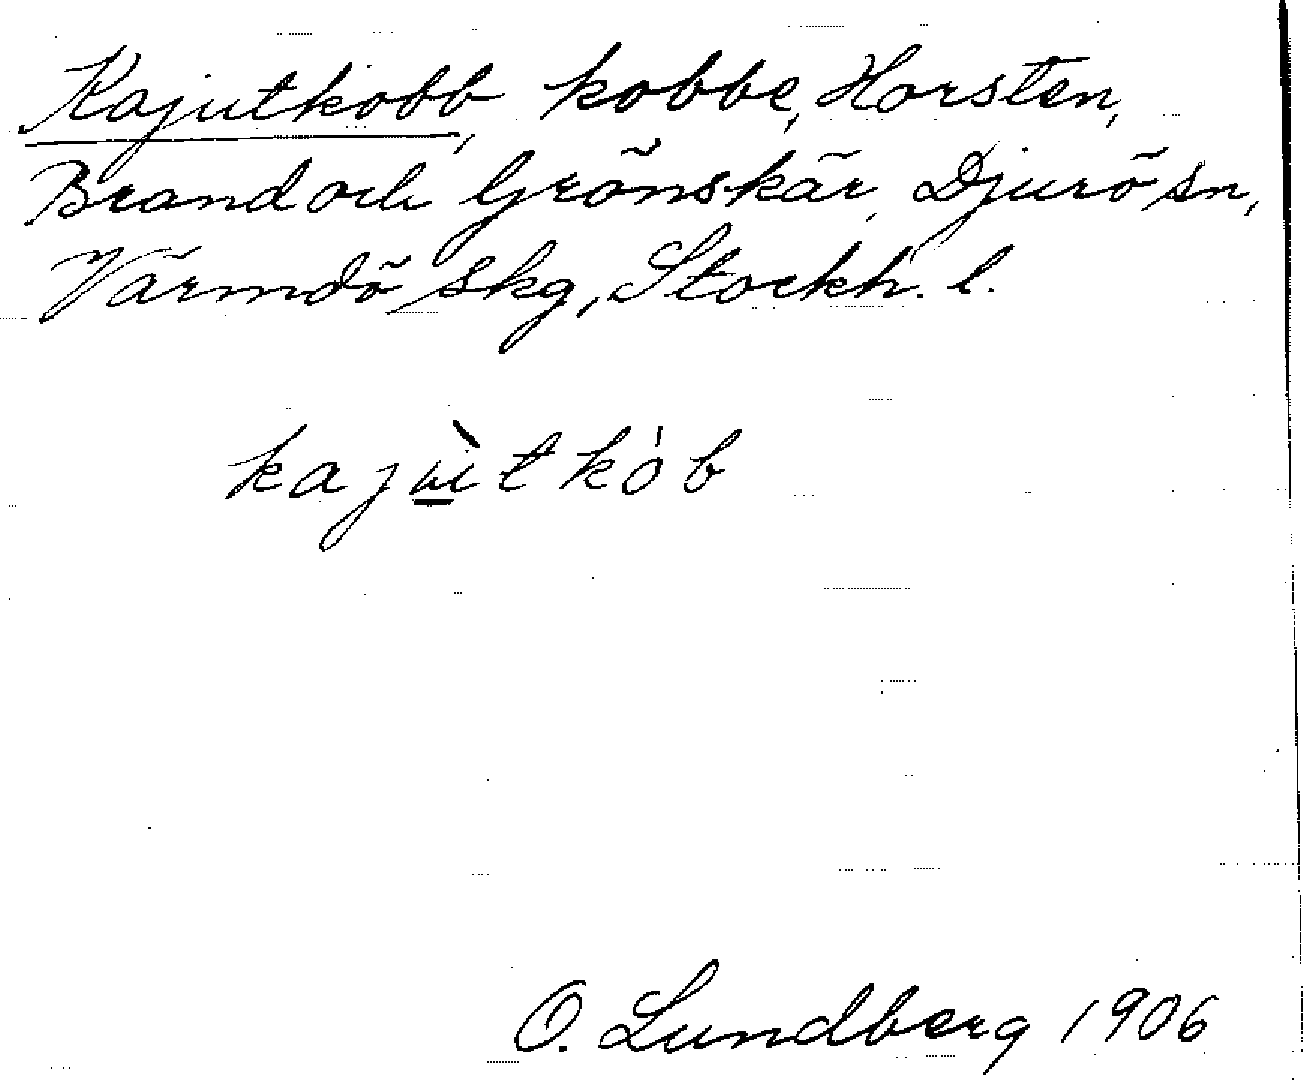 Kajutkobb, kobbe, Horsten,
Brand och Grönskär, Djurö sn,
Värmdö skg, Stockh. l.
kajùtkób
O. Lundberg 1906